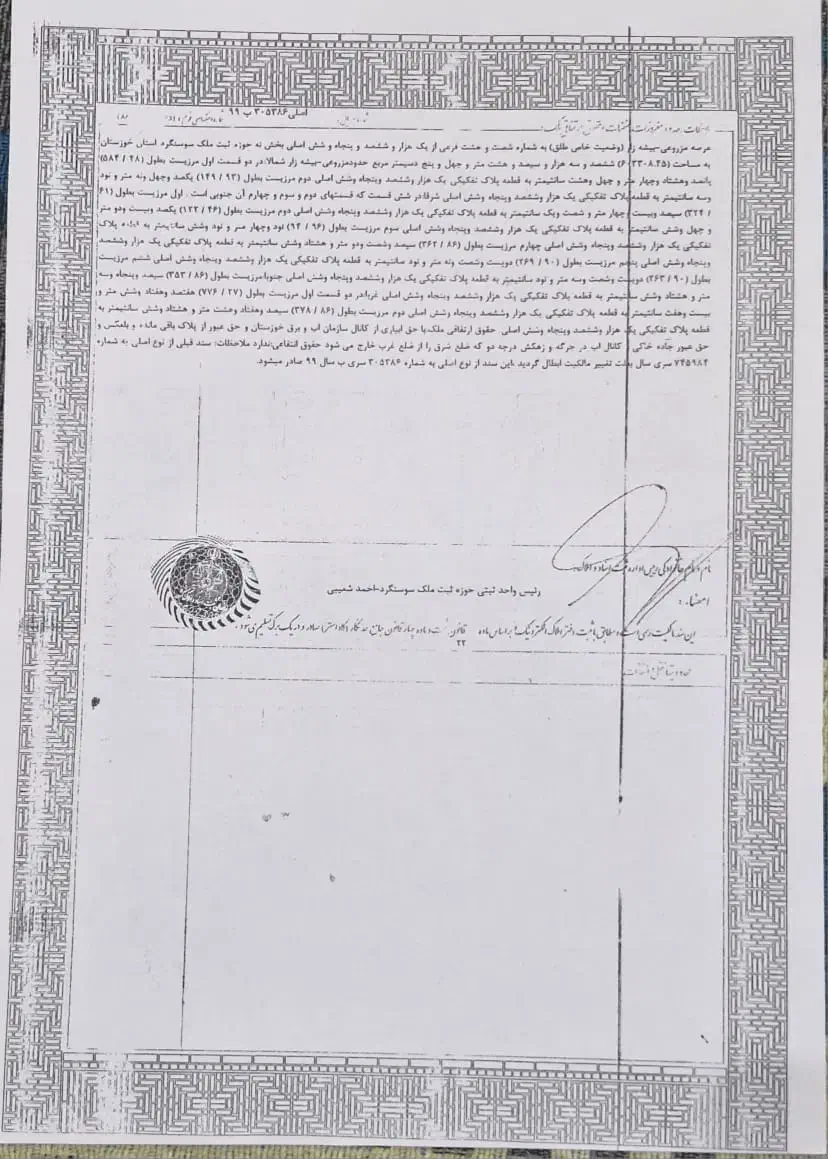 اصلی ۳۰۵۳۸۶ ب ۹۹
عرصه مزروعی-بیشه زار (وضعیت خاص طلق) به شماره شصت و هشت فرعی از یک هزار و ششصد و پنجاه و شش اصلی بخش نه حوزه ثبت ملک سوسنگرد استان خوزستان
به مساحت (۶۰۳۳۰۸.۴۵) ششصد و سه هزار و سیصد و هشت متر و چهل و پنج دسیمتر مربع حدودمزروعی-بیشه زار شمالا:در دو قسمت اول مرزیست بطول (۴۸ / ۵۸۴)
پانصد وهشتاد وچهار متر و چهل وهشت سانتیمتر به قطعه پلاک تفکیکی یک هزار وششصد وپنجاه وشش اصلی دوم مرزیست بطول (۹۳ / ۱۴۹) یکصد وچهل ونه متر و نود
وسه سانتیمتر به قطعه پلاک تفکیکی یک هزار وششصد وپنجاه وشش اصلی شرقا:در شش قسمت که قسمتهای دوم و سوم و چهارم آن جنوبی است . اول مرزیست بطول (۶۱
/ ۳۲۴) سیصد وبیست وچهار متر و شصت ویک سانتیمتر به قطعه پلاک تفکیکی یک هزار وششصد وپنجاه وشش اصلی دوم مرزیست بطول (۴۶ / ۱۲۲) یکصد وبیست ودو متر
و چهل وشش سانتیمتر به قطعه پلاک تفکیکی یک هزار وششصد وپنجاه وشش اصلی سوم مرزیست بطول (۹۶ / ۹۴) نود وچهار متر و نود وشش سانتیمتر به قطعه پلاک
تفکیکی یک هزار وششصد وپنجاه وشش اصلی چهارم مرزیست بطول (۸۶ / ۳۶۲) سیصد وشصت ودو متر و هشتاد وشش سانتیمتر به قطعه پلاک تفکیکی یک هزار وششصد
وپنجاه وشش اصلی پنجم مرزیست بطول (۹۰ / ۲۶۹) دویست وشصت ونه متر و نود سانتیمتر به قطعه پلاک تفکیکی یک هزار وششصد وپنجاه وشش اصلی ششم مرزیست
بطول (۹۰ / ۲۶۳) دویست وشصت وسه متر و نود سانتیمتر به قطعه پلاک تفکیکی یک هزار وششصد وپنجاه وشش اصلی جنوبا:مرزیست بطول (۸۶ / ۳۵۳) سیصد وپنجاه وسه
متر و هشتاد وشش سانتیمتر به قطعه پلاک تفکیکی یک هزار وششصد وپنجاه وشش اصلی غربا:در دو قسمت اول مرزیست بطول (۲۷ / ۷۷۶) هفتصد وهفتاد وشش متر و
بیست وهفت سانتیمتر به قطعه پلاک تفکیکی یک هزار وششصد وپنجاه وشش اصلی دوم مرزیست بطول (۸۶ / ۳۷۸) سیصد وهفتاد وهشت متر و هشتاد وشش سانتیمتر به
قطعه پلاک تفکیکی یک هزار وششصد وپنجاه وشش اصلی حقوق ارتفاقی ملک:با حق ابیاری از کانال سازمان آب و برق خوزستان و حق عبور از پلاک باقی مانده و بلعکس و
حق عبور جاده خاکی از کانال اب در جرگه و زهکش درجه دو که ضلع شرق را از ضلع غرب خارج می شود حقوق انتفاعی:ندارد ملاحظات: سند قبلی از نوع اصلی به شماره
۷۴۵۹۸۴ سری سال بعلت تغییر مالکیت ابطال گردید ،این سند از نوع اصلی به شماره ۳۰۵۳۸۶ سری ب سال ۹۹ صادر میشود.
نام و نام خانوادگی رییس اداره ثبت اسناد و املاک:
رئیس واحد ثبتی حوزه ثبت ملک سوسنگرد-احمد شعیبی
امضاء :
این سند مالکیت رسمی است و مطابق با ثبت دفتر املاک الکترونیک بر اساس ماده ۲۲ قانون ثبت و ماده چهار قانون جامع حدنگار (کاداستر) صادر و در یک برگ تسلیم می شود.